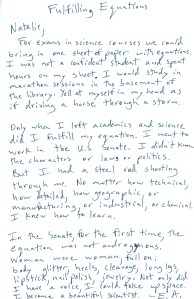 Fulfilling Equations
Natalie,
For exams in science courses we could
bring in one sheet of paper with equations.
I was not a confident student and spent
hours on my sheet, I would study in
marathon sessions in the basement of
the library. Yell at myself in my head as
if driving a horse through a storm.
Only when I left academics and science
did I fulfill my equation. I went to
work in the U.S. Senate. I didn't know
the characters or laws or politics.
But I had a steel rod shooting
through me. No matter how technical,
how detailed, how geographic, or
manufacturing or industrial, or chemical
I knew how to learn.
In the Senate for the first time, the
equation was not androgynous.
Woman were woman, full on:
body glitter, heels, cleavage, long legs,
lipstick, nail polish, jewelry. Not only did
I have a voice, I could take up space.
I became a beautiful scientist. E.A.